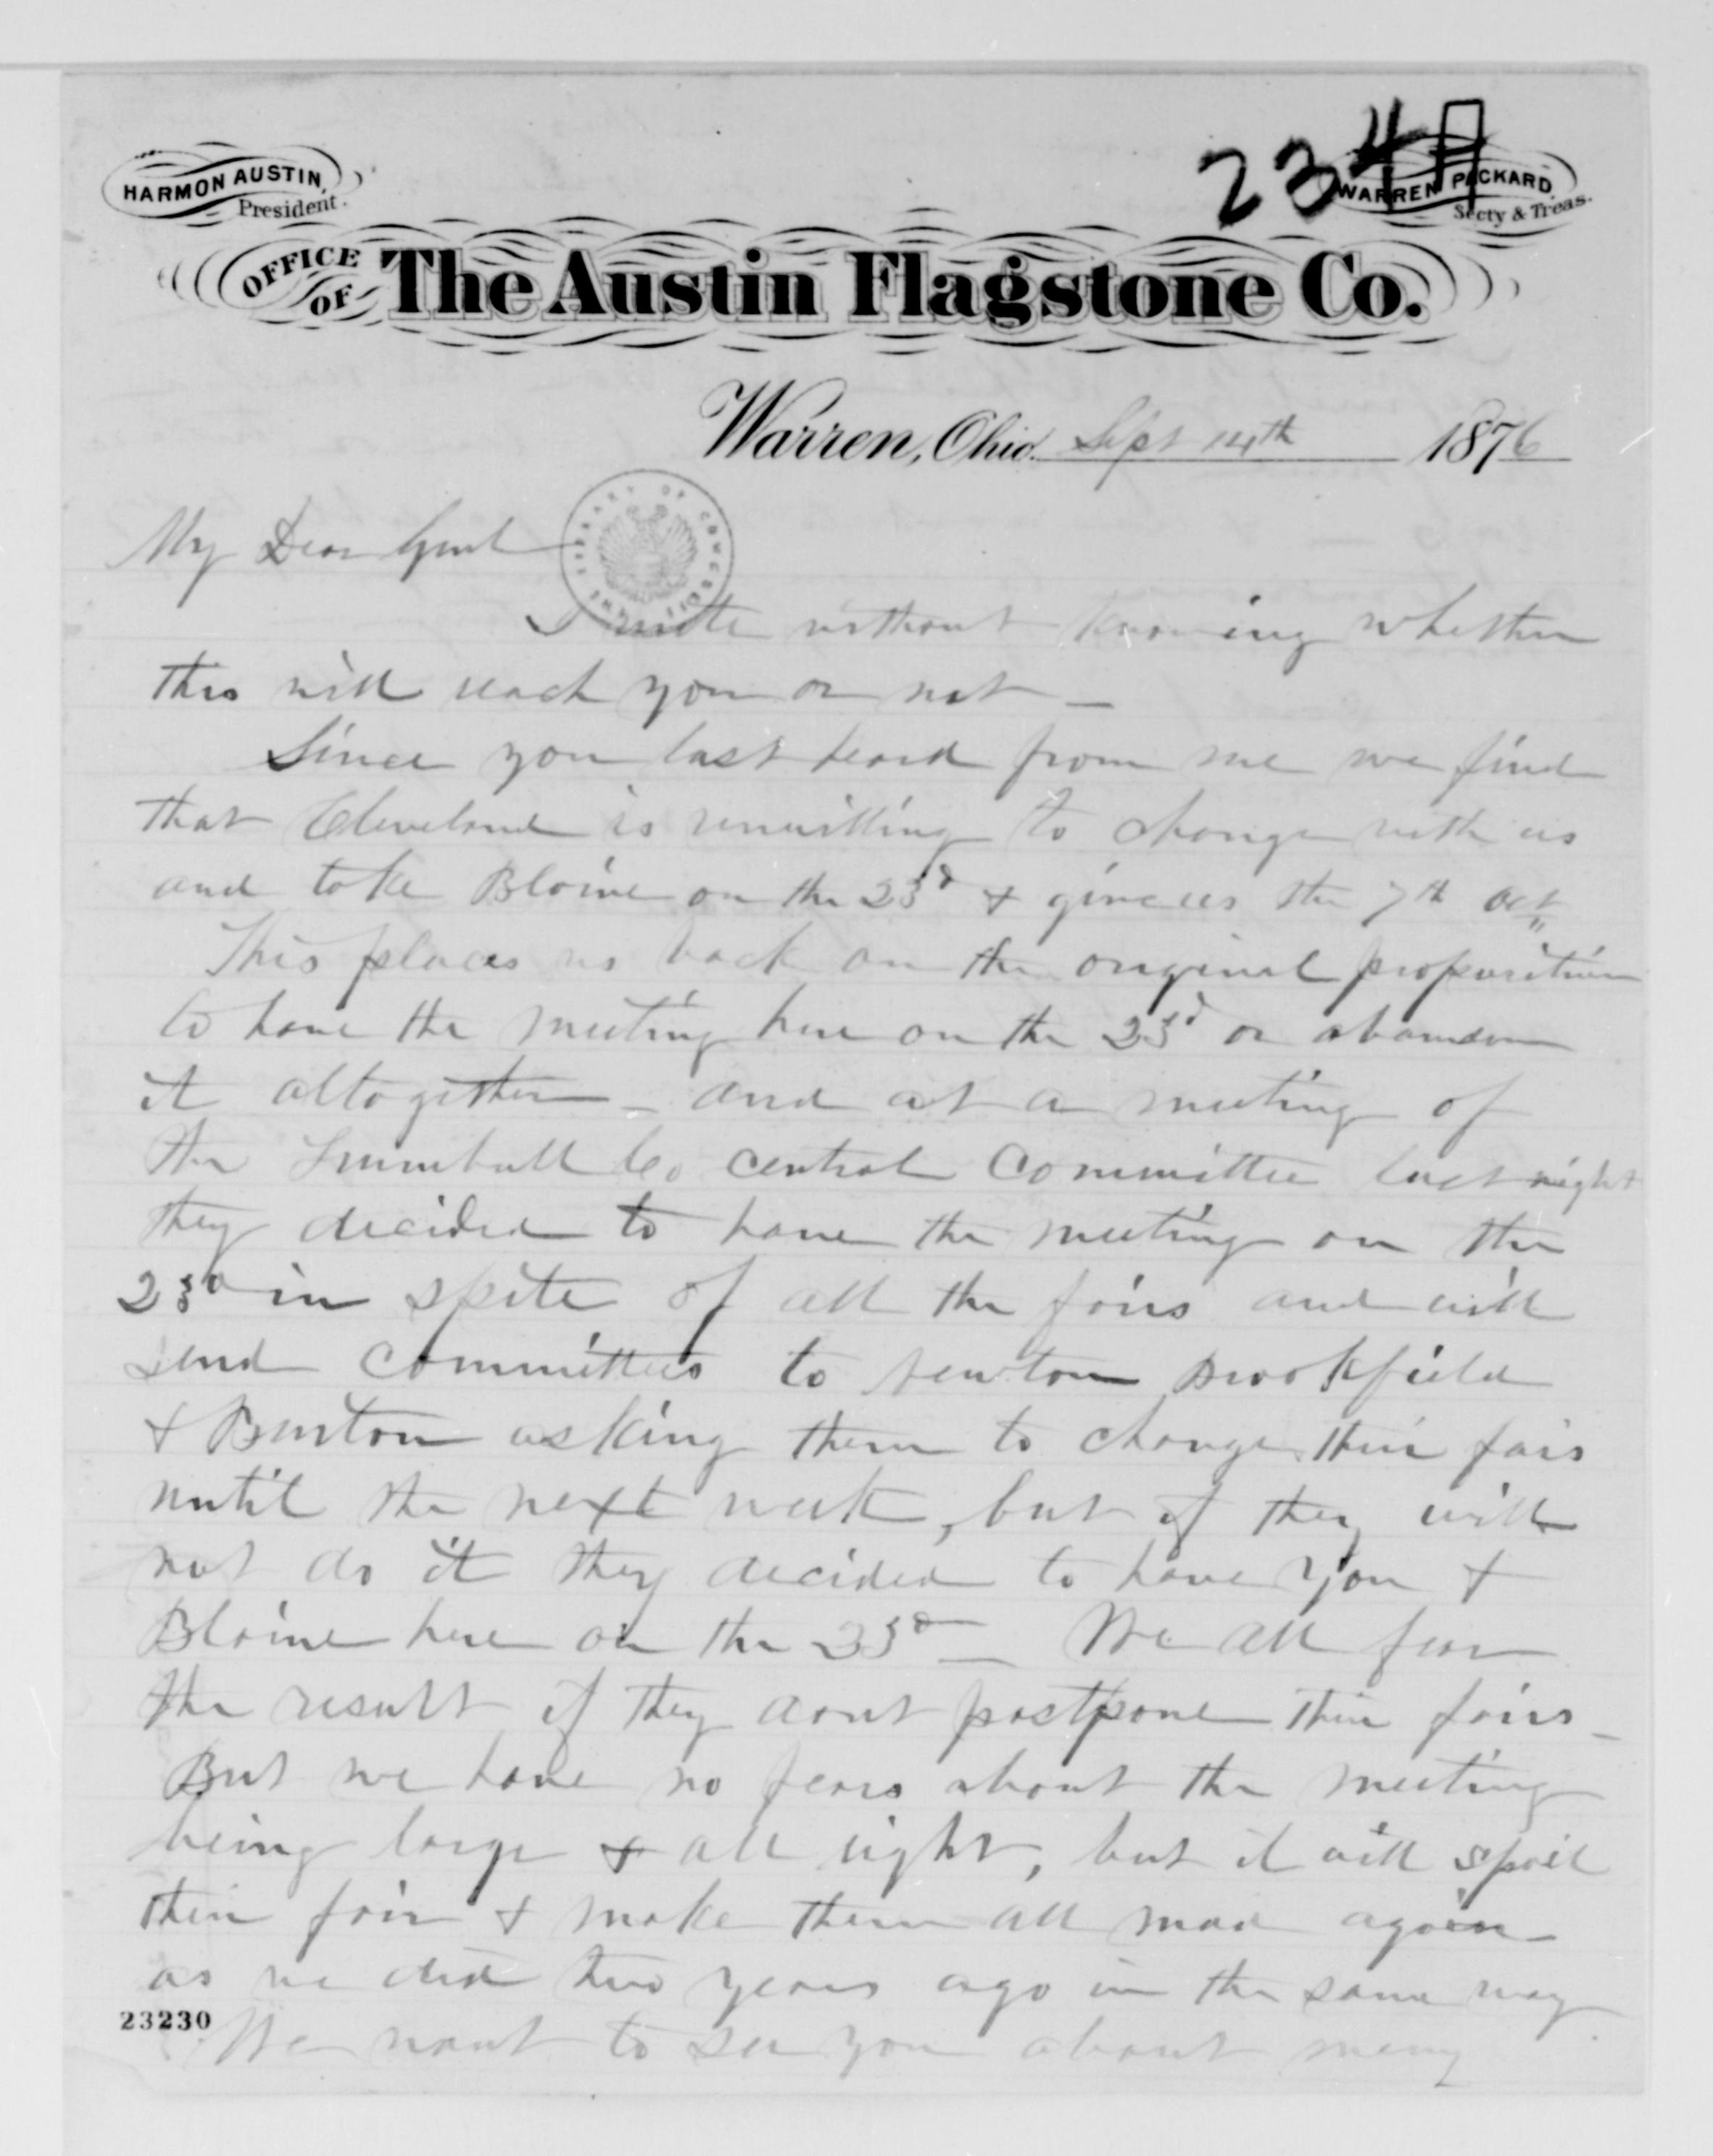 234A
HARMON AUSTIN,
President.
WARREN PACKARD
Secty & Treas.
OFFICE OF The Austin Flagstone Co.
Warren, Ohio. Sept 14th 1876
My Dear Genl
THE LIBRARY OF CONGRESS
I write without knowing whether
this will reach you or not —
Since you last heard from me we find
that Cleveland is unwilling to change with us
and take Blaine on the 23d & give us the 7th Oct
This places us back on the original proposition
to have the meeting here on the 23d or abandon
it altogether — and at a meeting of
the Trumbull Co central Committee last night
they decided to have the meeting on the
23d in spite of all the fairs and will
send committees to Newton Brookfield
& Burton asking them to change their fairs
until the next week, but if they will
not do it they decided to have you &
Blaine here on the 23d — We all fear
the result if they dont postpone their fairs —
But we have no fears about the meeting
being large & all right, but it will spoil
their fair & make them all mad again
as we did two years ago in the same way
23230
We want to see you about many